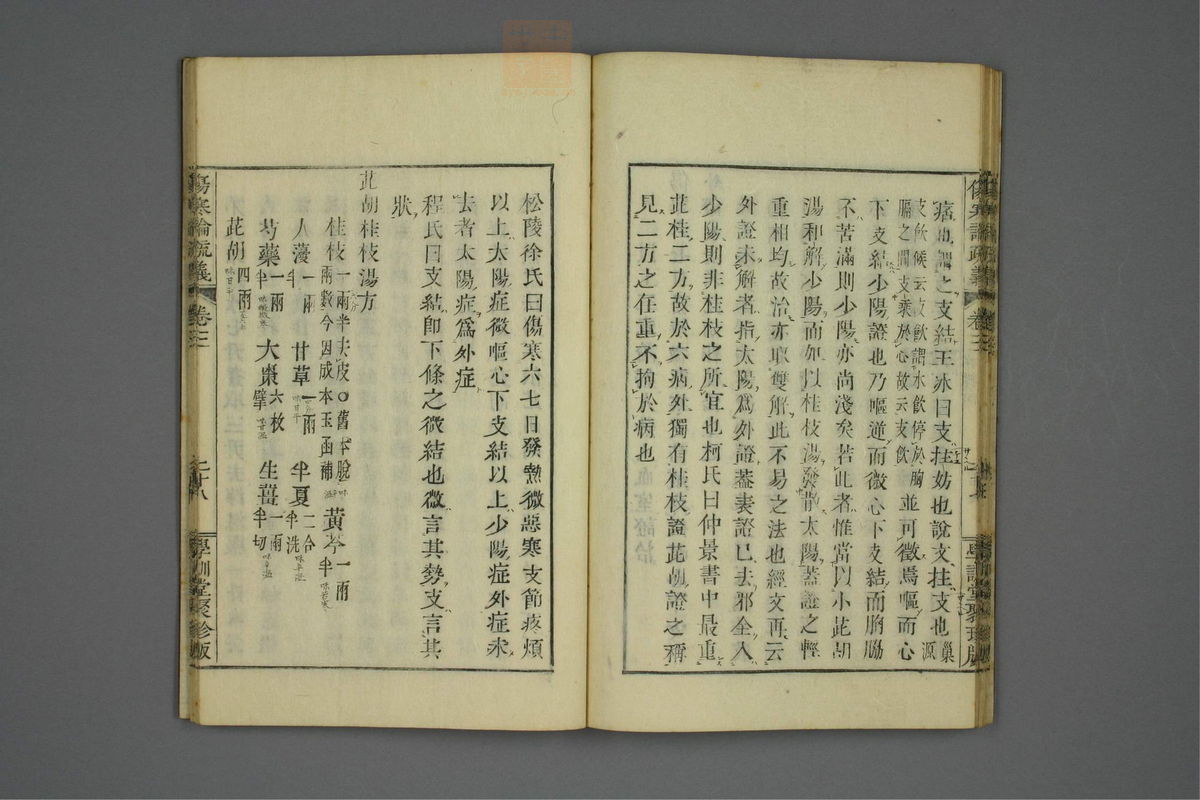 痞也謂之支結王冰曰支拄妨也說文拄支也巢源
支飲候云支飲謂水飲停於胸
膈之間支乘於心故云支飲
並可徵焉嘔而心
下支結少陽證也乃嘔逆而微心下支結而胸脇
不苦滿則少陽亦尚淺矣若此者惟當以小茈胡
湯和解少陽而加以桂枝湯發散太陽蓋證之輕
重相均故治亦取雙解此不易之法也經文再云
外證未解者指太陽爲外證蓋表證已去邪全入
少陽則非桂枝之所宜也柯氏曰仲景書中最重
茈桂二方故於六病外獨有桂枝證茈胡證之稱
見二方之任重不拘於病也
松陵徐氏曰傷寒六七日發熱微惡寒支節疼煩
以上太陽症微嘔心下支結以上少陽症外症未
去者太陽症爲外症
程氏曰支結即下條之微結也微言其勢支言其
狀
茈胡桂枝湯方
桂枝一兩半去皮○舊本脫
兩數今因成本玉函補
黃芩一兩半味苦寒
人薓一兩半
甘草一兩味甘平
半夏二合半洗味辛溫
芍藥一兩半味酸微寒
大棗六枚擘味甘溫
生薑一兩半切味辛溫
茈胡四兩味甘平
傷寒論疏義
卷三
二十八
學訓堂聚珍版